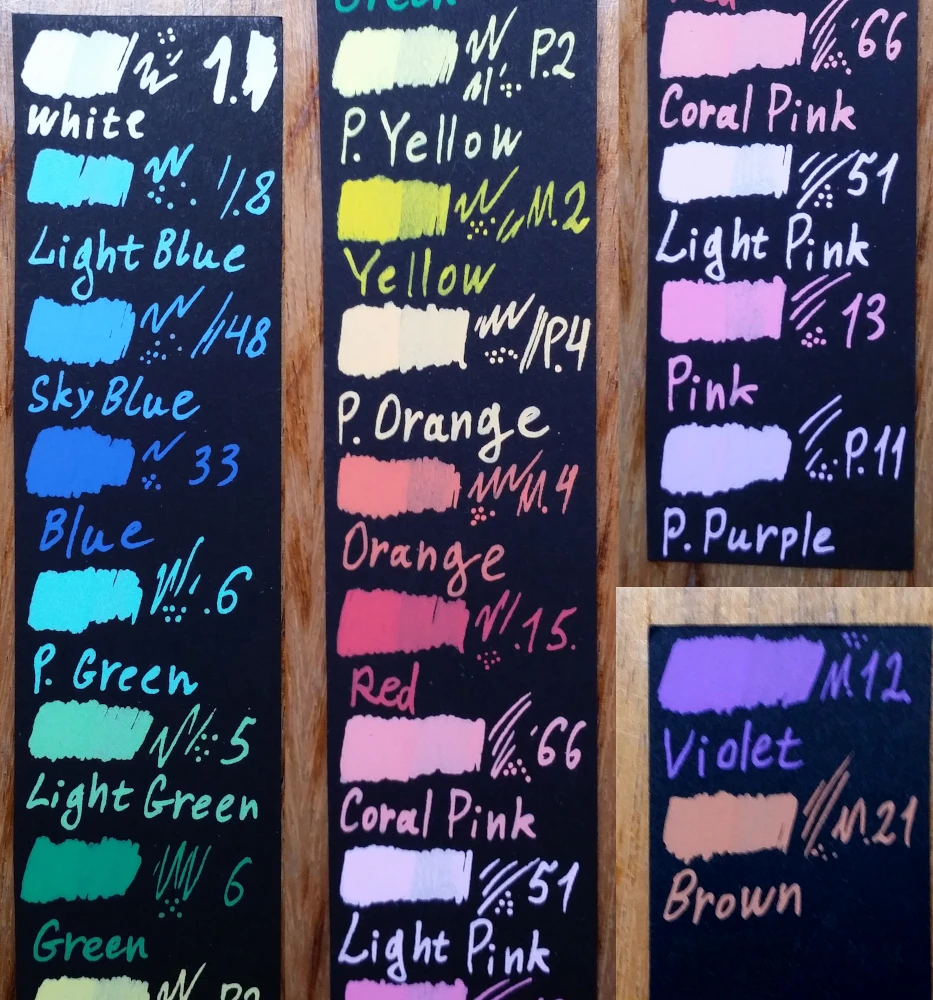 1.1
White
1.8
Light Blue
48
Sky Blue
33
Blue
.6
P. Green
5
Light Green
6
Green
P.2
Green
P.2
P. Yellow
M.2
Yellow
P.4
P. Orange
M.4
Orange
.15.
Red
66
Coral Pink
51
Light Pink
Red
66
Coral Pink
51
Light Pink
13
Pink
P.11
P. Purple
M.12
Violet
M.21
Brown